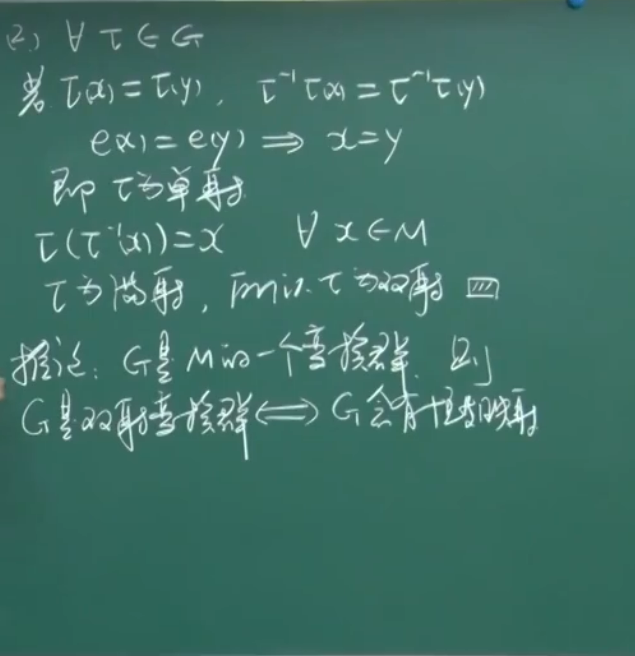 (2) ∀ τ∈G
若 τ(x)=τ(y), τ⁻¹τ(x)=τ⁻¹τ(y)
e(x)=e(y) ⟹ x=y
即 τ为单射
τ(τ⁻¹(x))=x ∀ x∈M
τ为满射, 所以 τ为双射
推论: G是M的一个变换群, 则
G是双射变换群 ⟺ G含有恒等映射